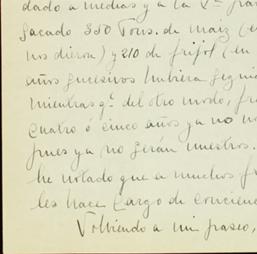 dado a medias y a la
sacado 350 Tons. de maiz (
nos dieron) y 210 de frijol (en
años sucesivos hubiera segui
mientras q.e del otro modo,
cuatro ó cinco años ya no no
pues ya no seran nuestros.
he notado que a muchos
les hace cargo de concienc
Volviendo a mi paseo,